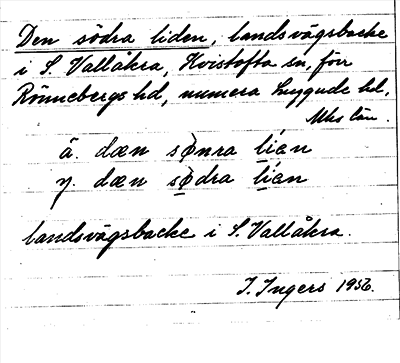 Den södra liden, landsvägsbacke
i S. Vallåkra, Kvistofta sn, förr
Rönnebergs hd, numera Luggude hd,
Mhs län.
ä. dæn sønra lían
y. dæn sødra lían
landsvägsbacke i S. Vallåkra.
I. Ingers 1956.